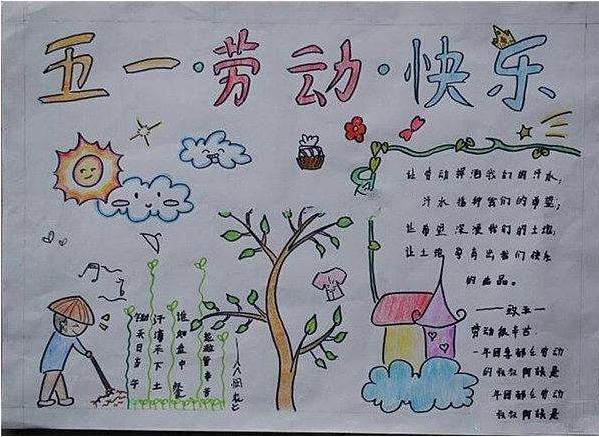 五一·劳动·快乐
让劳动挥洒我们的汗水;
汗水播种我们的希望;
让希望我们的土地;
让土地孕育出我们快乐
的品。
——致五一
劳动辛苦
一年都劳动
的叔叔阿姨是
年都劳动
的叔叔阿姨是
锄禾日当午
汗滴禾下土
谁知盘中餐
粒粒皆辛苦
——《悯农》